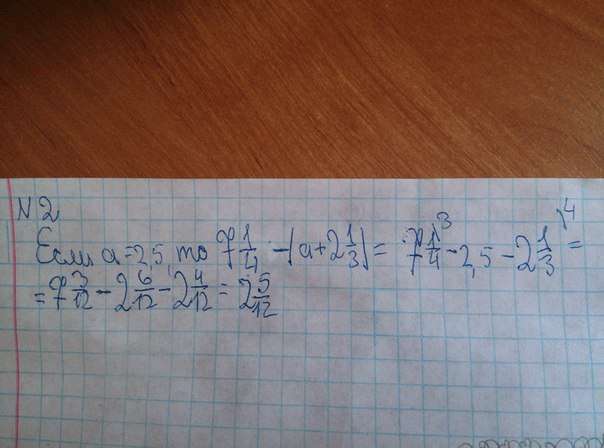 N 2
Если a = 2,5 то 7 1/4 - (a + 2 1/3) = 7 1/4 ³ - 2,5 - 2 1/3 ⁴ =
= 7 3/12 - 2 6/12 - 2 4/12 = 2 5/12